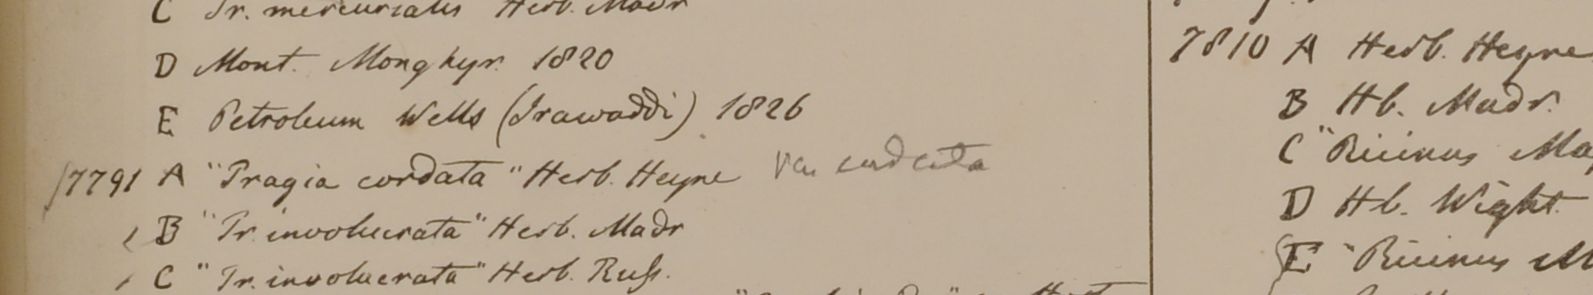 C Tr. mercurialis Herb. Madr
D Mont. Monghyr. 1820
E Petroleum Wells (Irawaddi) 1826
7791 A "Tragia cordata" Herb. Heyne Var cordata
B "Tr. involucrata" Herb. Madr
C "Tr. involucrata" Herb. Russ.
7810 A Herb. Heyne
B Hb. Madr.
C "Ricinus Ma
D Hb. Wight
E "Ricinus M